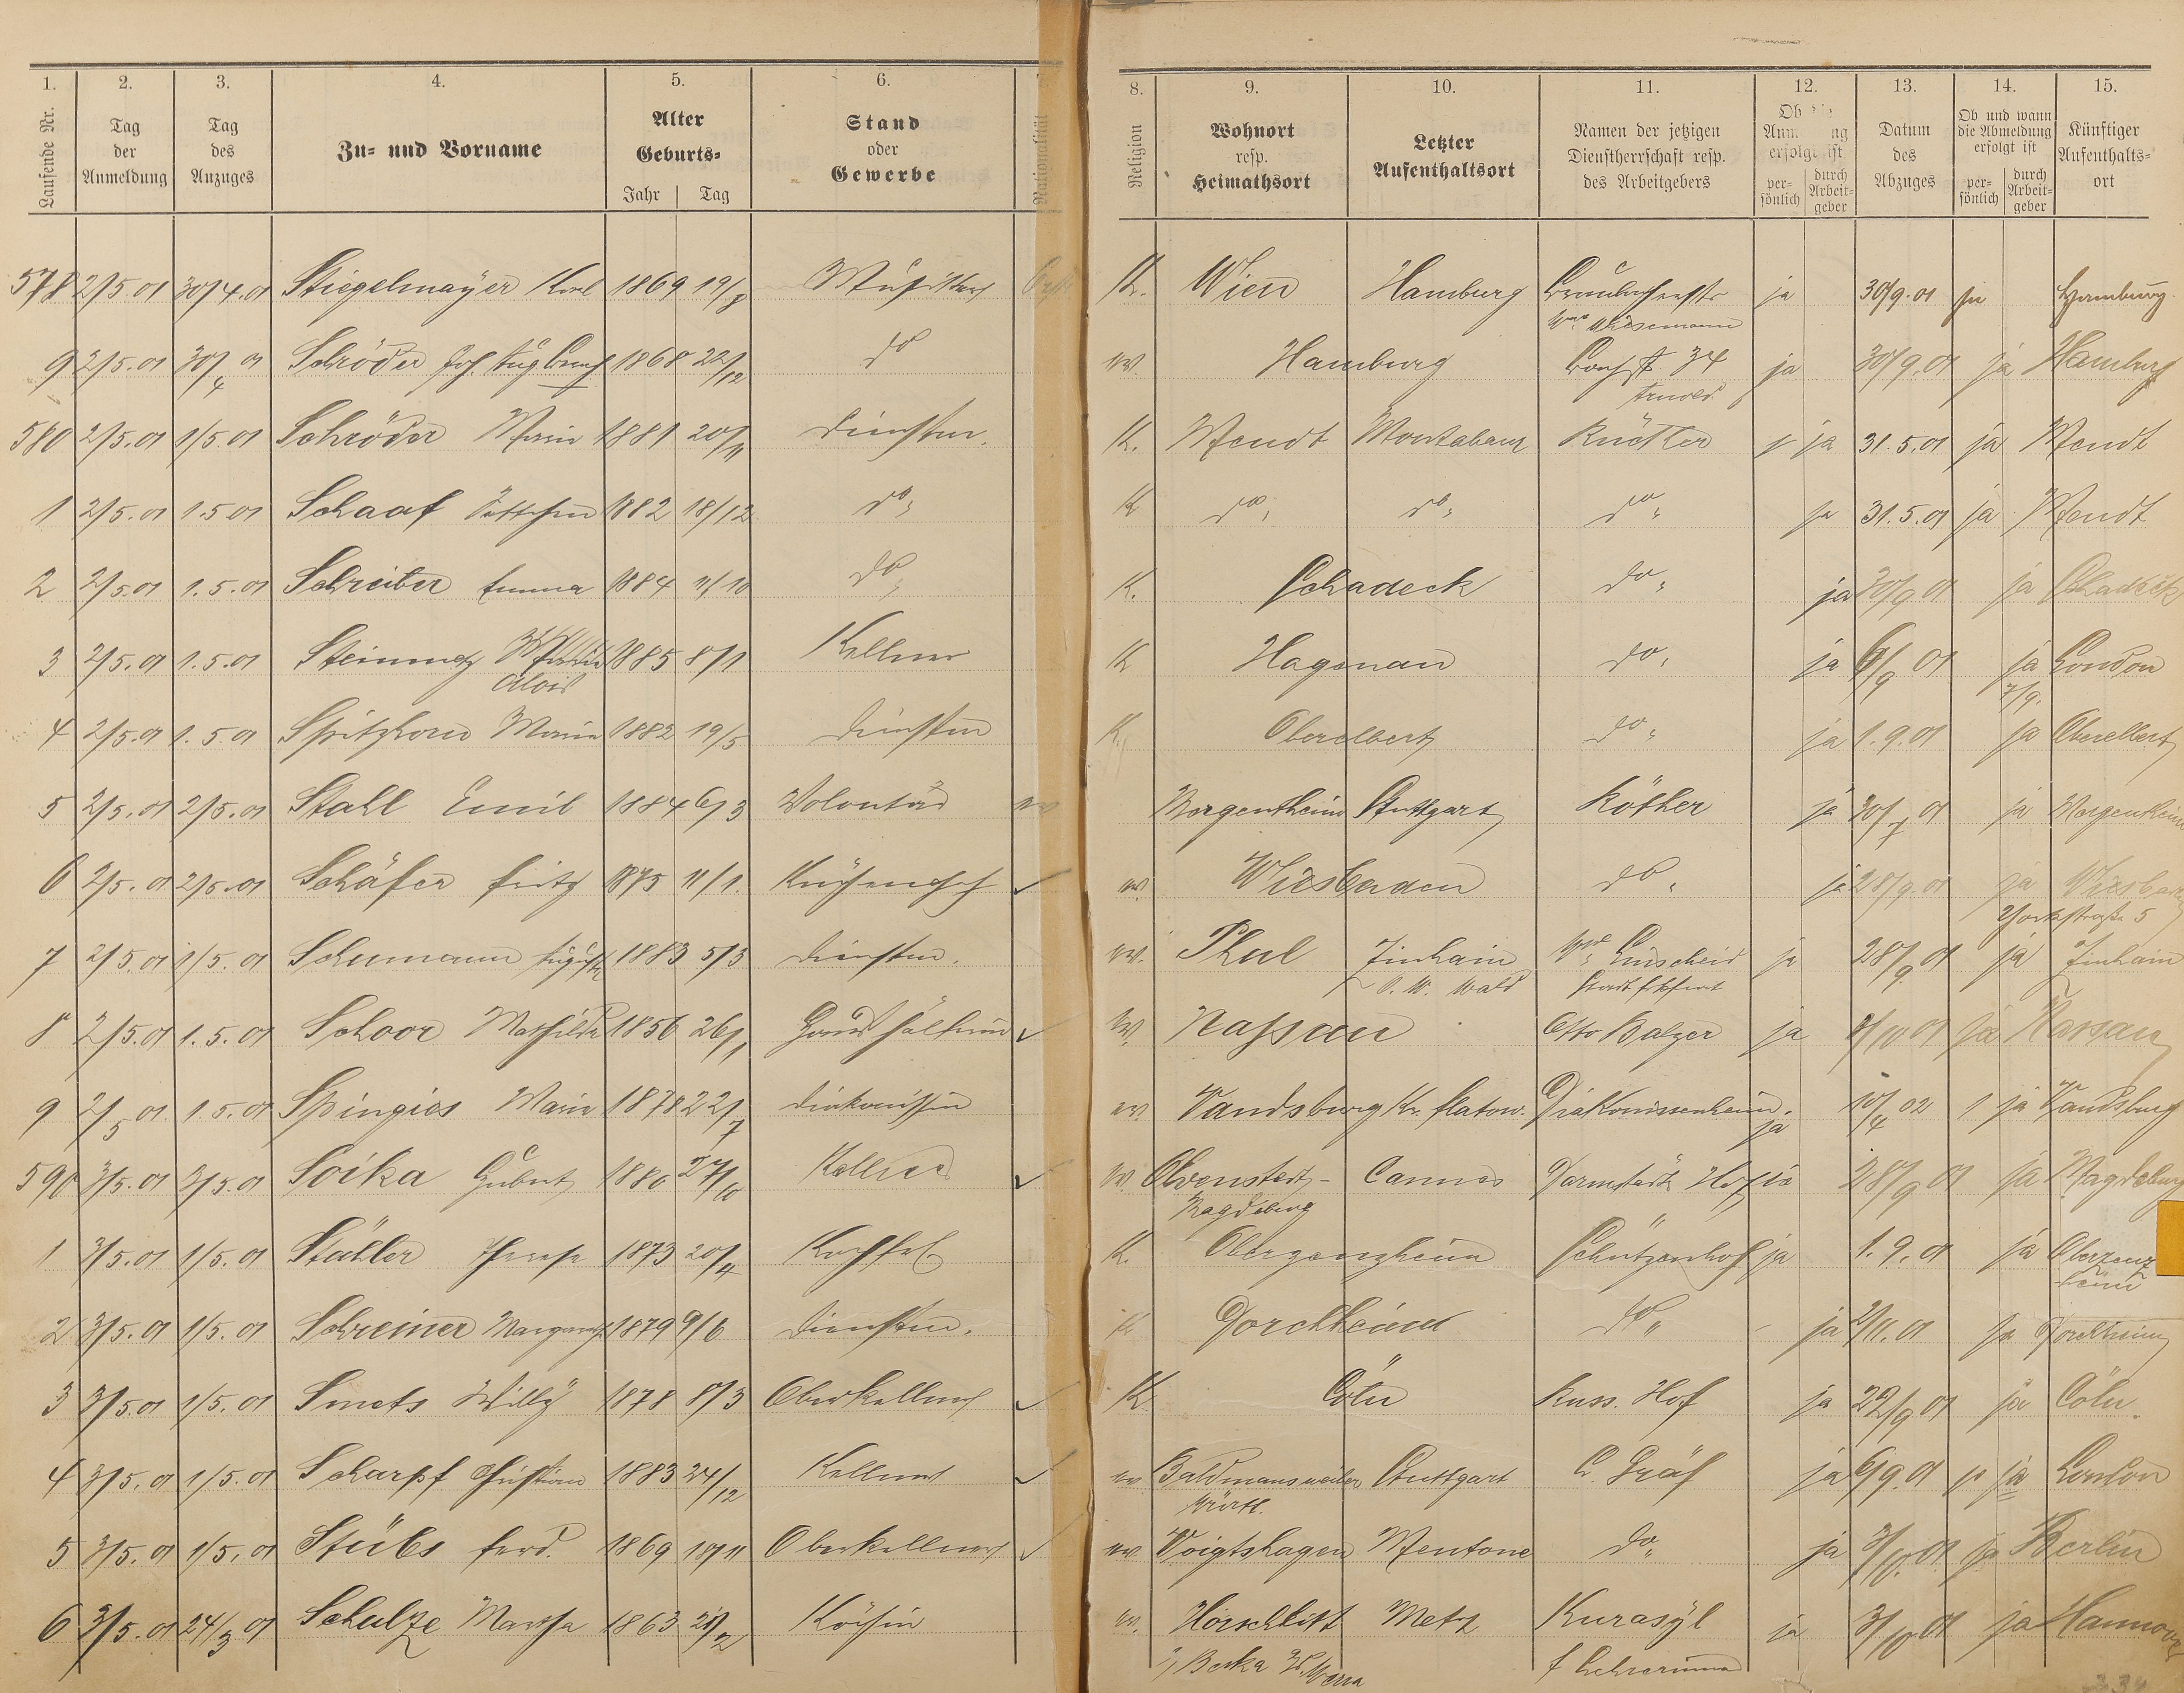 1. 2. 3. 4. 5. 6. 8. 9. 10. 11. 12. 13. 14. 15.
Laufende Nr. Tag der Anmeldung Tag des Anzuges Zu- und Vorname Alter Geburts- Jahr Tag Stand oder Gewerbe Nationalität Religion Wohnort resp. Heimathsort Letzter Aufenthaltsort Namen der jetzigen Dienstherrschaft resp. des Arbeitgebers erfolgt ist per-sönlich durch Arbeit-geber Datum des Abzuges Ob und wann die Abmeldung erfolgt ist per-sönlich durch Arbeit-geber Künftiger Aufenthalts-ort
578 2/5.01 30/4.01 Stiegelmayer Karl 1869 19/8 Musiker K. Wien Hamburg ja 30/9.01 ja Hamburg
Wwe Wiesemann
9 2/5.01 30/4 01 Schröder Joh. Aug. 1868 22/12 do ev. Hamburg 34 ja 30/9.01 ja Hamburg
Arnold
580 2/5.01 1/5.01 Schröder Maria 1881 20/11 Dienstm. K. Mendt Montabaur Rücker ja 31.5.01 ja Mendt
1 2/5.01 1.5.01 Schaaf 1882 18/12 do K do do do ja 31.5.01 ja Mendt
2 2/5.01 1.5.01 Schreiber Emma 1884 11/10 do K. Schadeck do ja 30/9 01 ja Schadeck
3 2/5.01 1.5.01 Steinmetz 1885 8/1 Kellner K Hagenau do ja 6/9 01 ja London
Alois 7/9.
4 2/5.01 1.5.01 Spitzhorn Maria 1882 19/5 Dienstm K. Oberelbert do ja 1.9.01 ja Oberelbert
5 2/5.01 2/5.01 Stahl Emil 1884 6/3 Volontär ev Mergentheim Stuttgart Röther ja 30/7 01 ja Mergentheim
6 2/5.01 2/5.01 Schäfer Fritz 1875 11/1. Küchenchef ev. Wiesbaden do ja 28/9.01 ja Wiesbaden
Yorkstraße 5
7 2/5.01 1/5.01 Schumann Auguste 1883 5/3 Dienstm. ev. Phul Zinhain Wwe Linscheid ja 28/9 01 ja Zinhain
O. W. Wald
8 2/5.01 1.5.01 Schoor Mathilde 1856 26/1 Haushälterin ev. Nassau Otto Balzer ja 8/10 01 ja Nassau
9 2/5 01 1.5.01 Spingies Maria 1878 22/7 Diakonissin ev. Vandsburg Kr. Flatow. Diakonissenheim. ja 10/4 02 1 ja Vandsburg
590 3/5.01 3/5.01 Soika Hubert 1880 27/10 Kellner ev. Olvenstedt- Cannes Darmstädt. Hof ja 28/9 01 ja Magdeburg
Magdeburg
1 3/5.01 1/5.01 Stähler Therese 1873 20/4 K. Oberzeuzheim Schützenhof ja 1.9.01 ja Oberzeuz
heim
2 3/5.01 1/5.01 Schreiner Margareth 1879 9/6 Dienstm. K Dorchheim do ja 2/11.01 ja Dorchheim
3 3/5.01 1/5.01 Smets Willy 1878 8/3 Oberkellner K Cöln Russ. Hof ja 22/9 01 ja Cöln.
4 3/5.01 1/5.01 Scharpf Christian 1883 24/12 Kellner ev Baldmansweiler Stuttgart C. Gräf ja 6/9.01 ja London
Württ.
5 3/5.01 1/5.01 Stübs Ferd. 1869 10/11 Oberkellner ev Voigtshagen Mentone do ja 3/10.01 ja Berlin
6 3/5.01 24/3 01 Schulze Martha 1863 21/2 Köchin ev. Hörschlitt Metz Kurasyl ja 3/10 01 ja Hannover
Berka Werra f Lehrerinnen
234